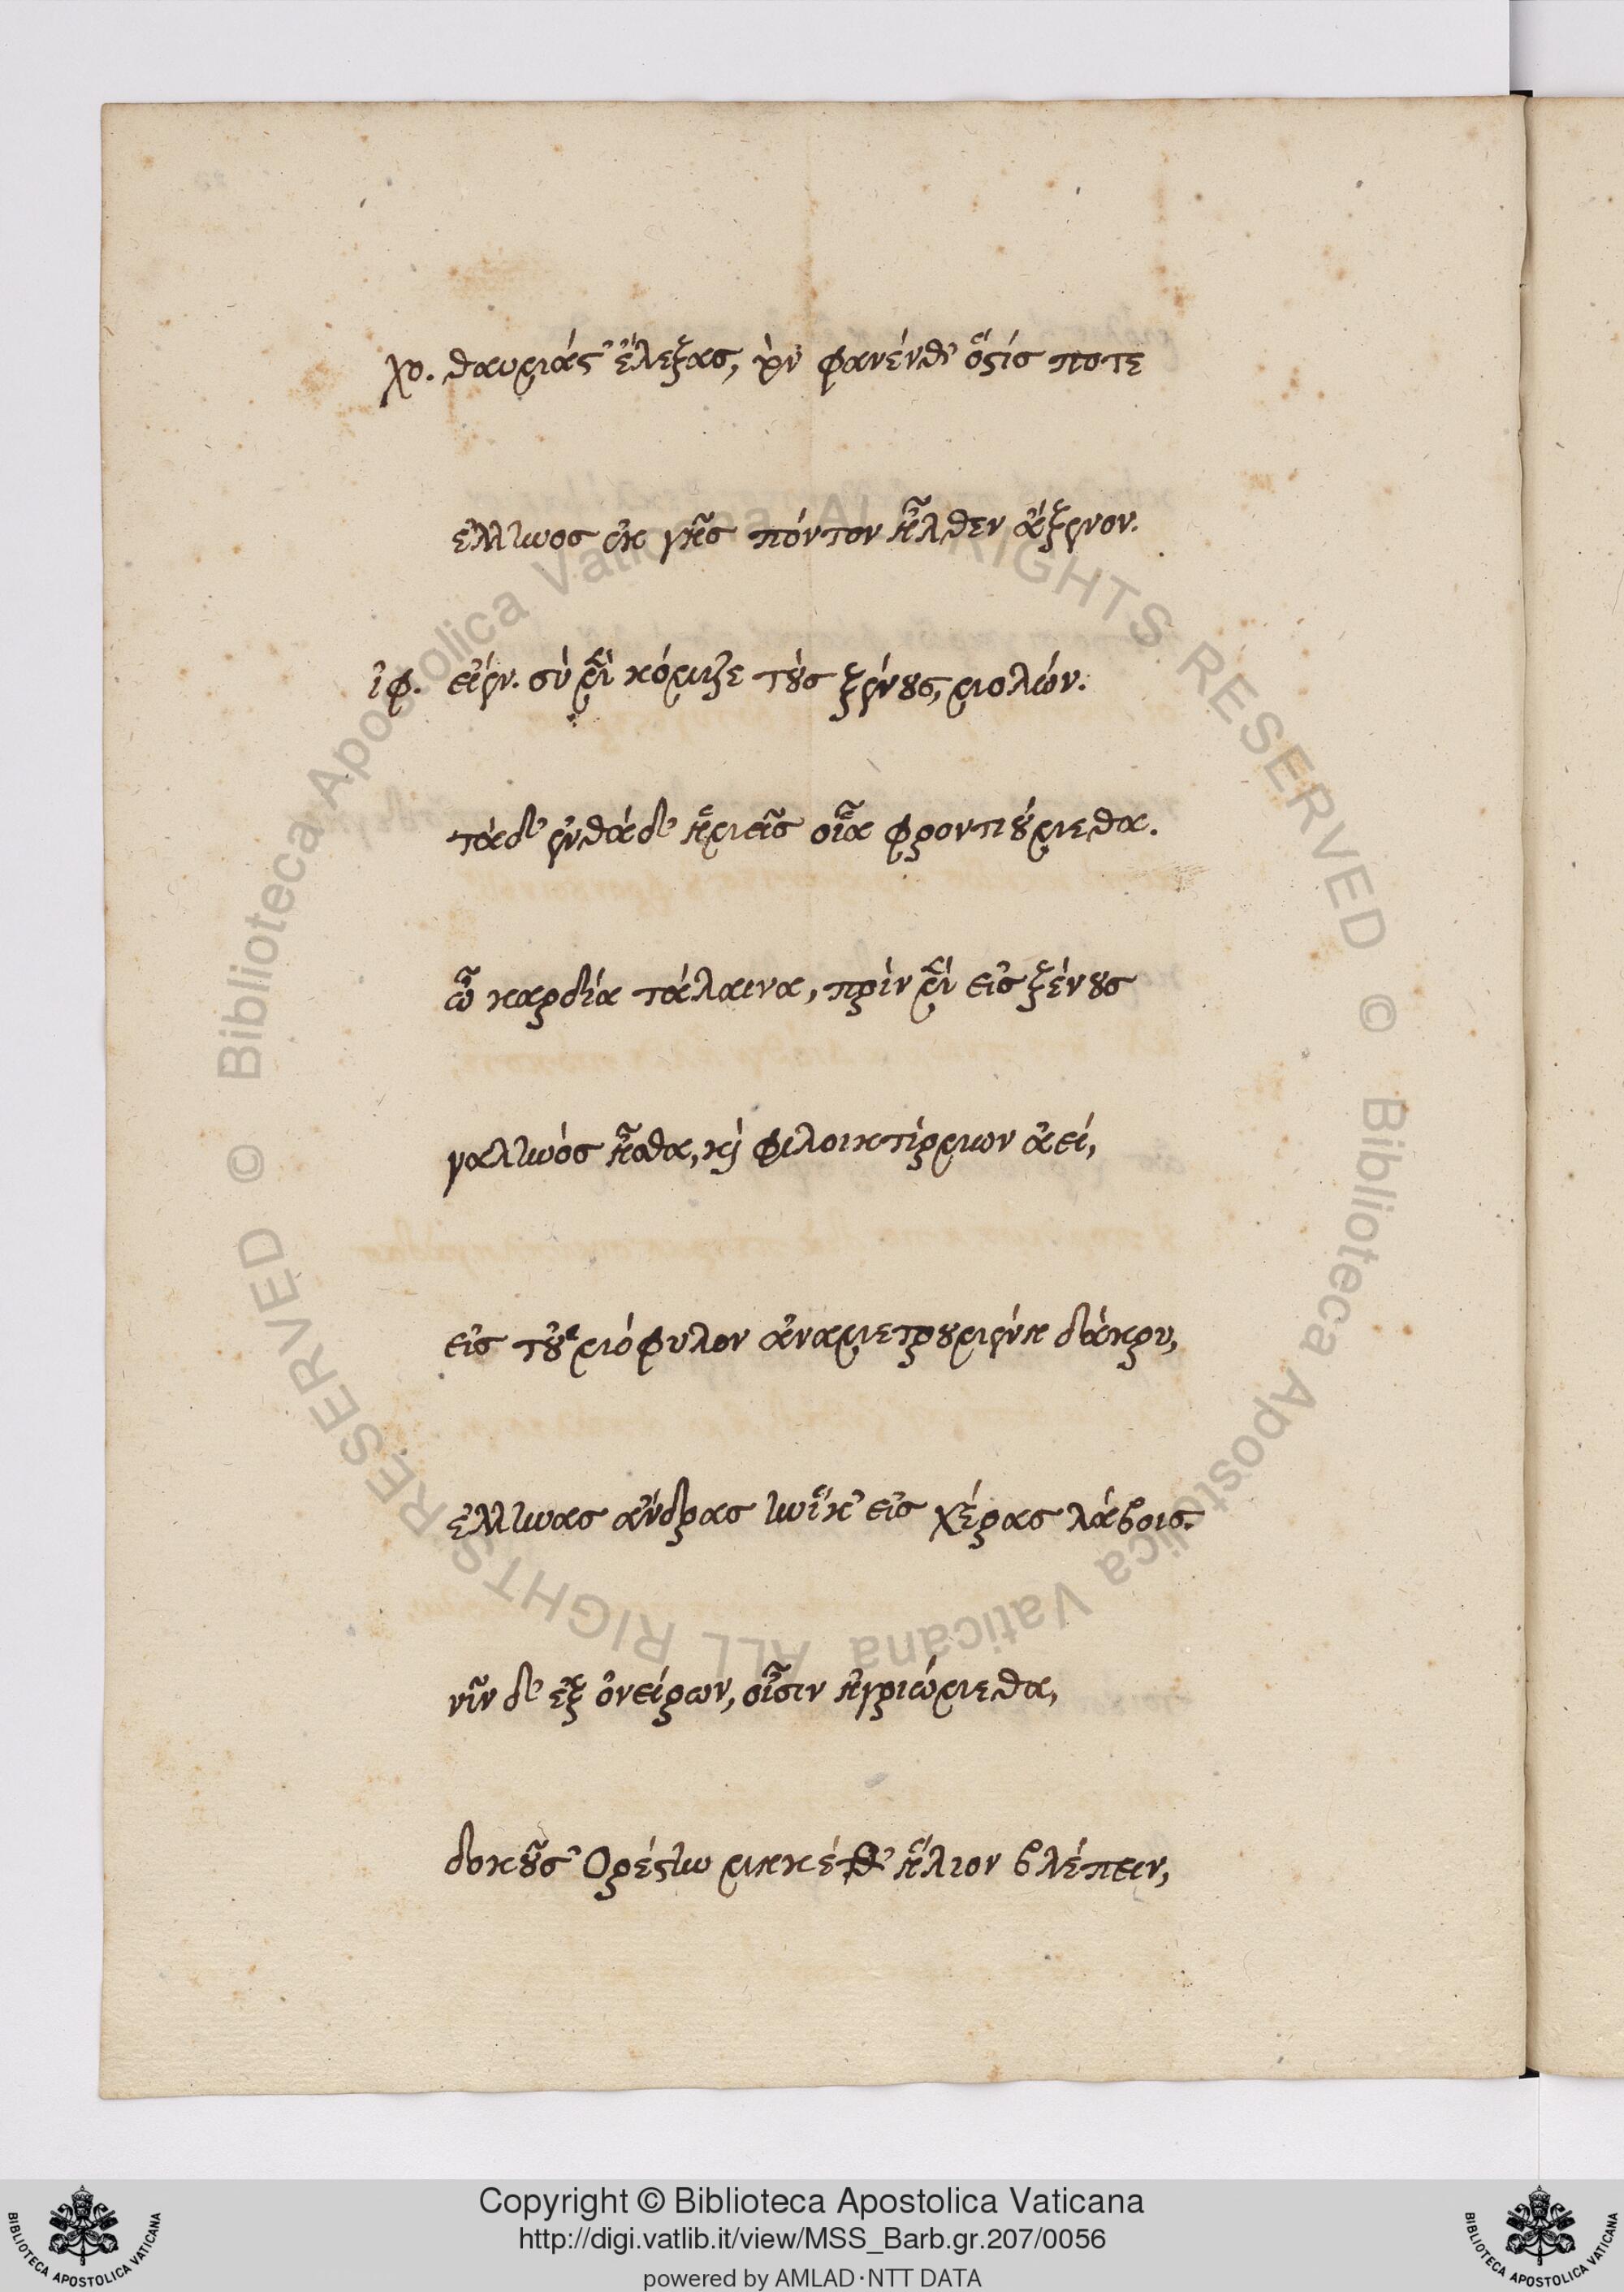 χο. θαυμάς' ἔλεξας, τὸν φανένθ' ὅςις ποτε
ἕλληνος ἐκ γῆς πόντον ἦλθεν ἄξενον.
ἰφ. εἶεν. σὺ μὲν κόμιζε τοὺς ξένους, μολών.
τὰ δ' ἐνθάδ' ἡμεῖς οἷα φροντιούμεθα.
ὦ καρδία τάλαινα, πρὶν μὲν εἰς ξένους
γαληνὸς ἦσθα, καὶ φιλοικτίρμων ἀεί,
εἰς τοὐμόφυλον ἀναμετρουμένη δάκρυ,
ἕλληνας ἄνδρας ἡνίκ' εἰς χέρας λάβοις.
νῦν δ' ἐξ ὀνείρων, οἷσιν ἠγριώμεθα,
δοκοῦσ' Ὀρέςην μηκέθ' ἥλιον βλέπειν,
Biblioteca Apostolica Vaticana ALL RIGHTS RESERVED ©
Biblioteca Apostolica Vaticana ALL RIGHTS RESERVED ©
Copyright © Biblioteca Apostolica Vaticana
http://digi.vatlib.it/view/MSS_Barb.gr.207/0056
powered by AMLAD·NTT DATA
BIBLIOTECA APOSTOLICA VATICANA
BIBLIOTECA APOSTOLICA VATICANA